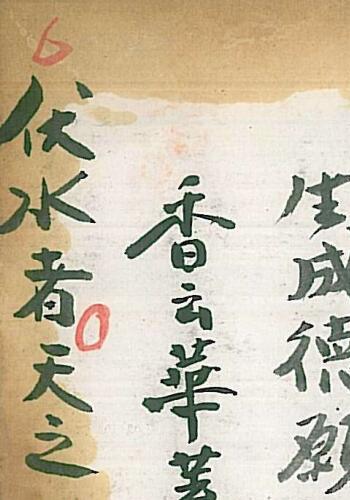 生成德願
香云華
伏水者天之
6